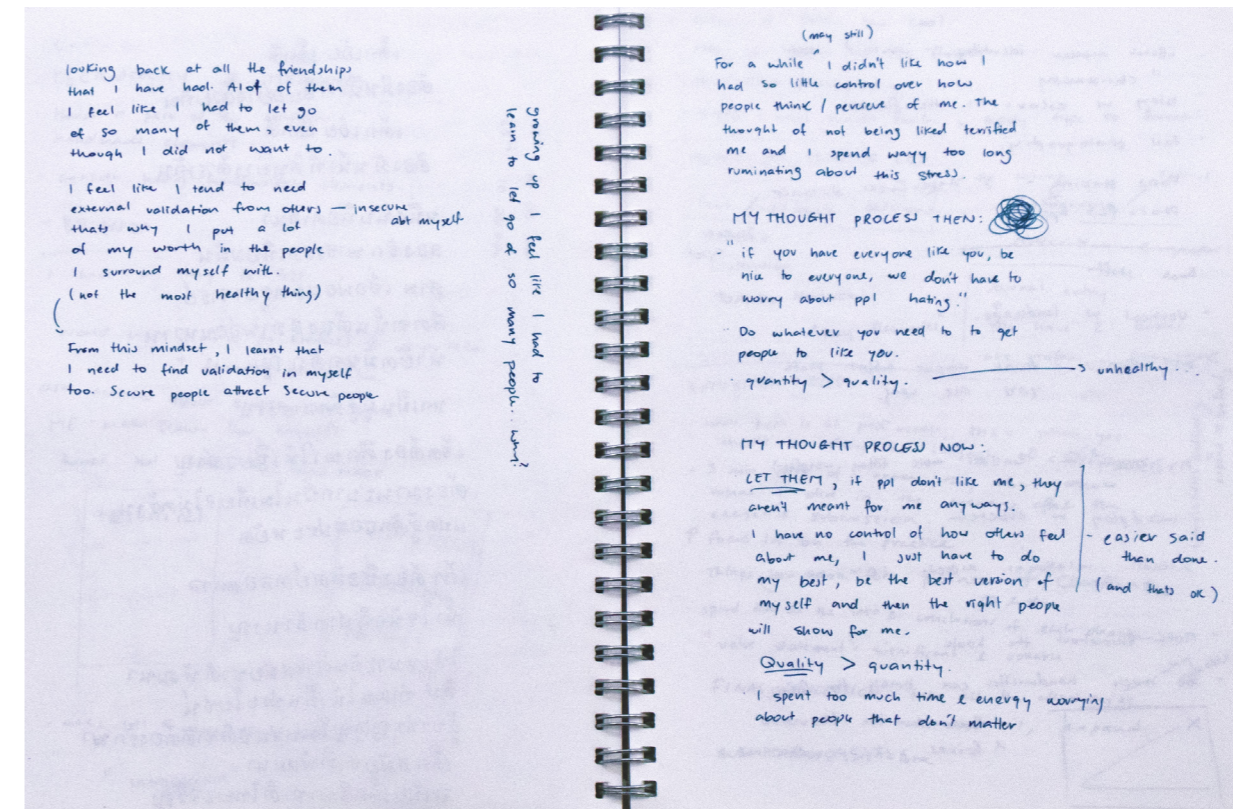 looking back at all the friendships
that I have had. Alot of them
I feel like I had to let go
of so many of them, even
though I did not want to.
I feel like I tend to need
external validation from others — insecure
abt myself
thats why I put a lot
of my worth in the people
I surround myself with.
(not the most healthy thing)
From this mindset, I learnt that
I need to find validation in myself
too. Secure people attract Secure people
growing up I feel like I had to
learn to let go of so many people.. why?
(may still)
For a while I didn't like how I
had so little control over how
people think / perceive of me. The
thought of not being liked terrified
me and I spend wayy too long
ruminating about this stress.
MY THOUGHT PROCESS THEN:
- "if you have everyone like you, be
nice to everyone, we don't have to
worry about ppl hating."
Do whatever you need to to get
people to like you.
quantity > quality. → unhealthy...
MY THOUGHT PROCESS NOW:
LET THEM, if ppl don't like me, they
aren't meant for me anyways.
I have no control of how others feel
about me, I just have to do
my best, be the best version of
myself and then the right people
will show for me.
- easier said
than done.
(and thats ok)
Quality > quantity.
I spent too much time & energy worrying
about people that don't matter